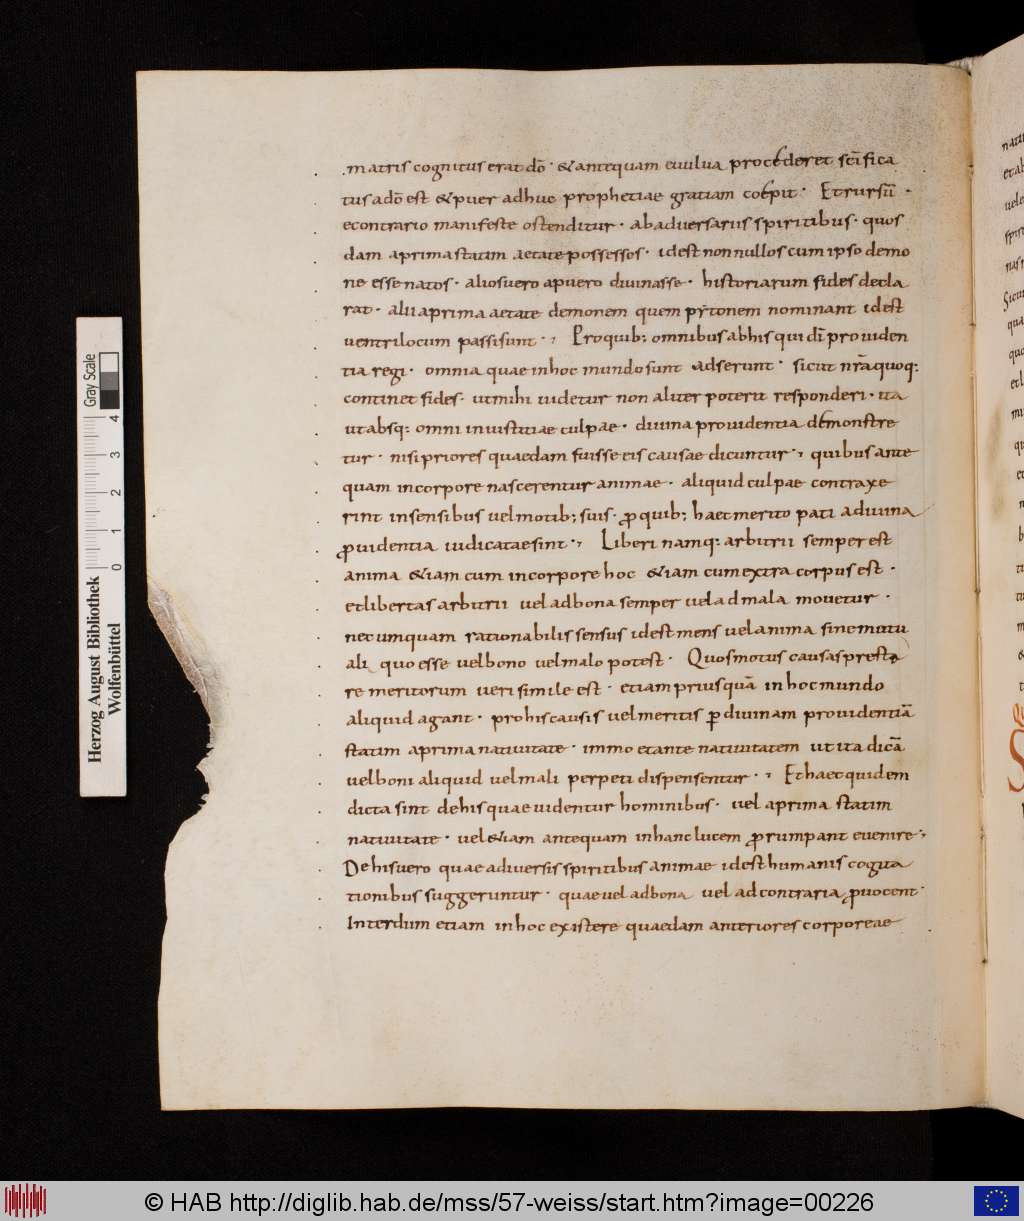 matris cognitus erat dō · & antequam euulua procederet sc̄ifica
tus adō est & puer adhuc prophetiae gratiam coepit · Et rursū ·
econtrario manifeste ostenditur · abaduersariis spiritibus · quos
dam aprima statim aetate possessos · idest nonnullos cum ipso demo
ne esse natos · alios uero apuero diuinasse · historiarum fides decla
rat · alii aprima aetate demonem quem pytonem nominant idest
uentrilocum passi sunt · Pro quib; omnibus ab his qui dī prouiden
tia regi · omnia quae inhoc mundo sunt adserunt · sicut nr̄a quoq;
continet fides · ut mihi uidetur non aliter poterit responderi · ita
ut absq; omni iniustitiae culpae · diuina prouidentia demonstre
tur · nisi priores quaedam fuisse eis causae dicuntur · quibus ante
quam incorpore nascerentur animae · aliquid culpae contraxe
rint insensibus uel motib; suis · ꝓ quib; haec merito pati adiuina
ꝓuidentia iudicatae sint · Liberi namq; arbitrii semper est
anima &iam cum incorpore hoc &iam cum extra corpus est ·
et libertas arbitrii uel ad bona semper uel ad mala mouetur ·
nec umquam rationabilis sensus idest mens uel anima sine motu
ali quo esse uel bono uel malo potest · Quos motus causas presta
re meritorum ueri simile est · etiam priusquā inhoc mundo
aliquid agant · pro his causis uel meritis ꝑ diuinam prouidentiā
statim aprima natiuitate · immo et ante natiuitatem ut ita dicā
uel boni aliquid uel mali perpeti dispensentur · Et haec quidem
dicta sint de his quae uidentur hominibus · uel aprima statim
natiuitate · uel &iam antequam inhanc lucem ꝓrumpant euenire ·
De his uero quae adiuersis spiritibus animae idest humanis cogita
tionibus suggeruntur · quae uel ad bona uel ad contraria ꝓuocent ·
Interdum etiam inhoc existere quaedam anteriores corporeae
Herzog August Bibliothek
Wolfenbüttel
Gray Scale
0 1 2 3 4
© HAB http://diglib.hab.de/mss/57-weiss/start.htm?image=00226